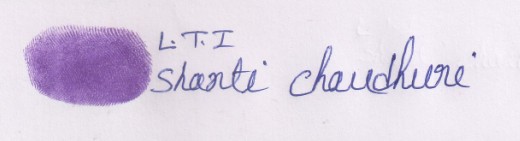 L.T.I
Shanti Chaudhuri